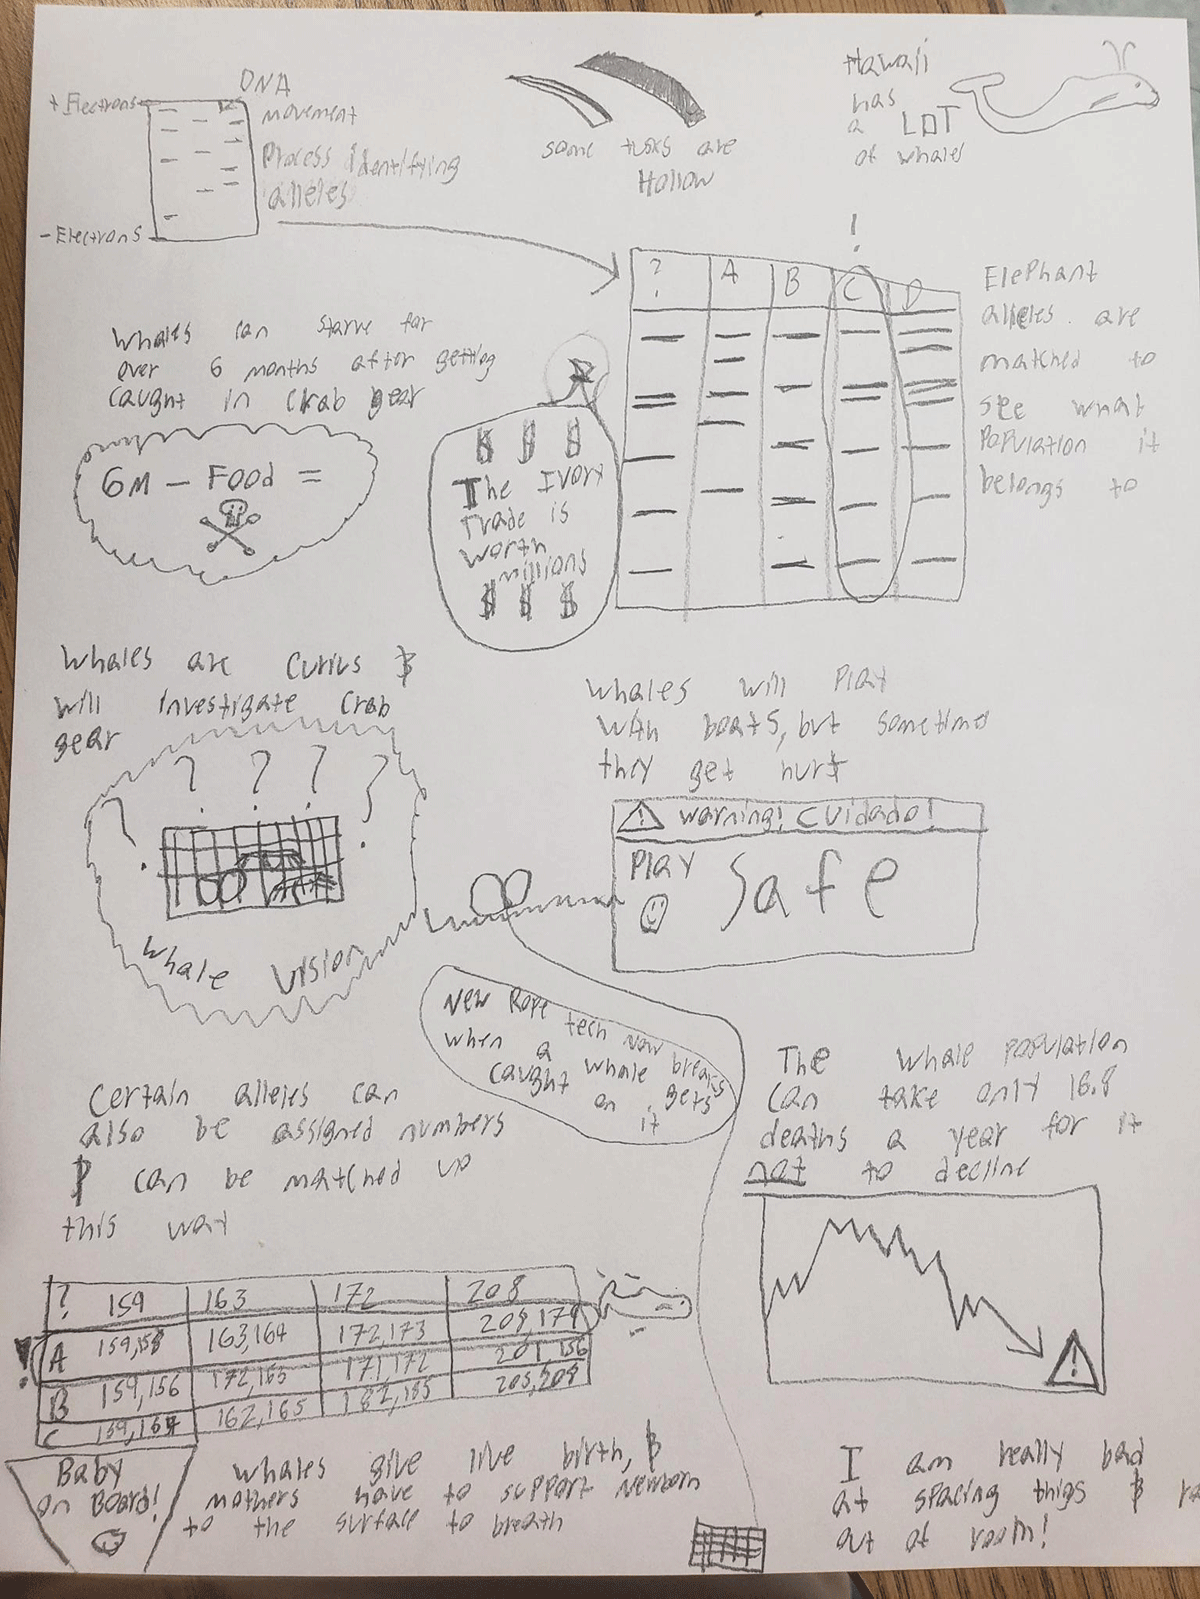 DNA
movement
Process identifying
alleles
+ Electrons
- Electrons
some tusks are
Hollow
Hawaii
has
a LOT
of whales
!
? A B C D
Elephant
alleles are
matched to
see what
Population it
belongs to
Whales can starve for
over 6 months after getting
caught in crab gear
6M - Food =
$ $ $
The Ivory
Trade is
worth
millions
$ $ $
Whales are curius &
will investigate crab
gear
? ? ? ? ?
Whale Vision
Whales will Play
with boats, but sometimes
they get hurt
! Warning! Cuidado!
Play Safe
New Rope tech now breaks
when a caught whale gets
on it
The whale population
can take only 16.8
deaths a year for it
not to decline
!
Certain alleles can
also be assigned numbers
& can be matched up
this way
? 159 163 172 208
! A 159,158 163,164 172,173 208,179
B 159,156 172,163 171,172 201,156
C 159, 162,165 182,185 205,208
Baby
on Board!
Whales give live birth, &
mothers have to support newborn
to the surface to breath
I am really bad
at spacing thigs &
out of room!